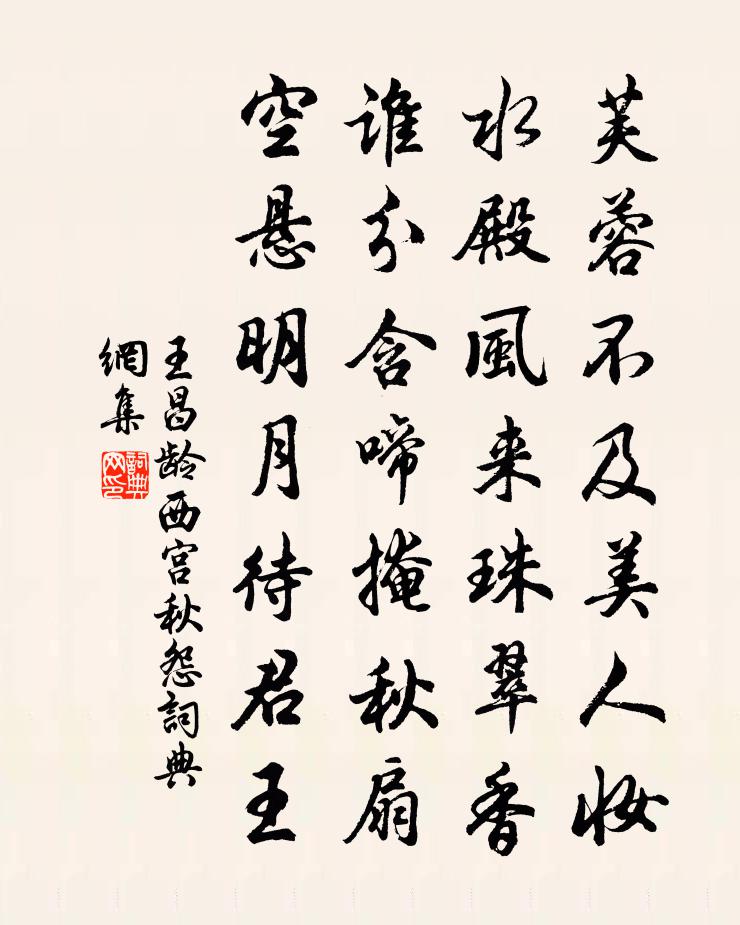 芙蓉不及美人妆
水殿風来珠翠香
谁分含啼掩秋扇
空悬明月待君王
王昌龄西宫秋怨詞典
網集
詞典网印